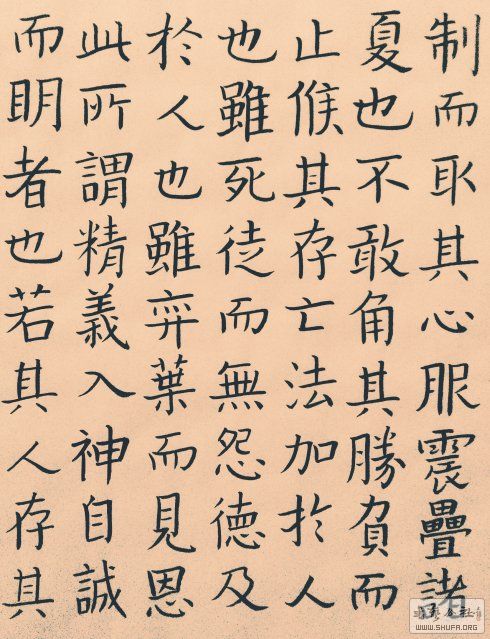 制而取其心服震疊諸
夏也不敢角其勝負而
止候其存亡法加於人
也雖死徒而無怨德及
於人也雖弈葉而見恩
此所謂精義入神自誠
而眀者也若其人存其
WWW.SHUFA.ORG